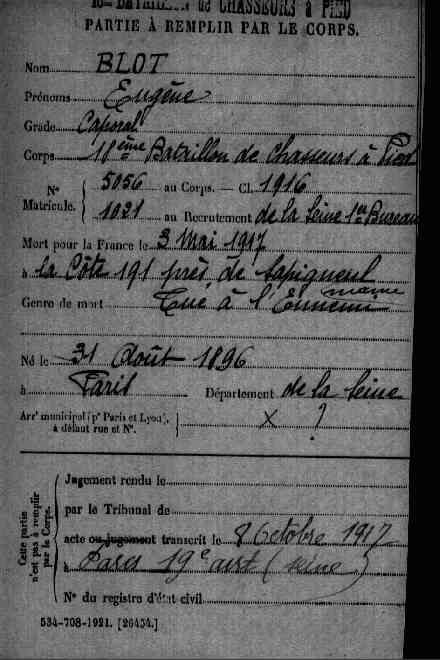 BATAILLON de CHASSEURS à PIED
PARTIE À REMPLIR PAR LE CORPS.
Nom BLOT
Prénoms Eugène
Grade Caporal
Corps 18ème Bataillon de Chasseurs à Pied
N° Matricule. 5056 au Corps. — Cl. 1916
1021 au Recrutement de la Seine 1er Bureau
Mort pour la France le 3 Mai 1917
à la Côte 191 près de Sapigneul
marne
Genre de mort Tué à l'Ennemi
Né le 31 Août 1896
à Paris Département de la Seine
Arrt municipal (pr Paris et Lyon), à défaut rue et N°. X ?
Cette partie n'est pas à remplir par le Corps.
Jugement rendu le
par le Tribunal de
acte ou jugement transcrit le 8 Octobre 1917
à Paris 19e arrt (Seine)
N° du registre d'état civil
534-708-1921. [26434.]